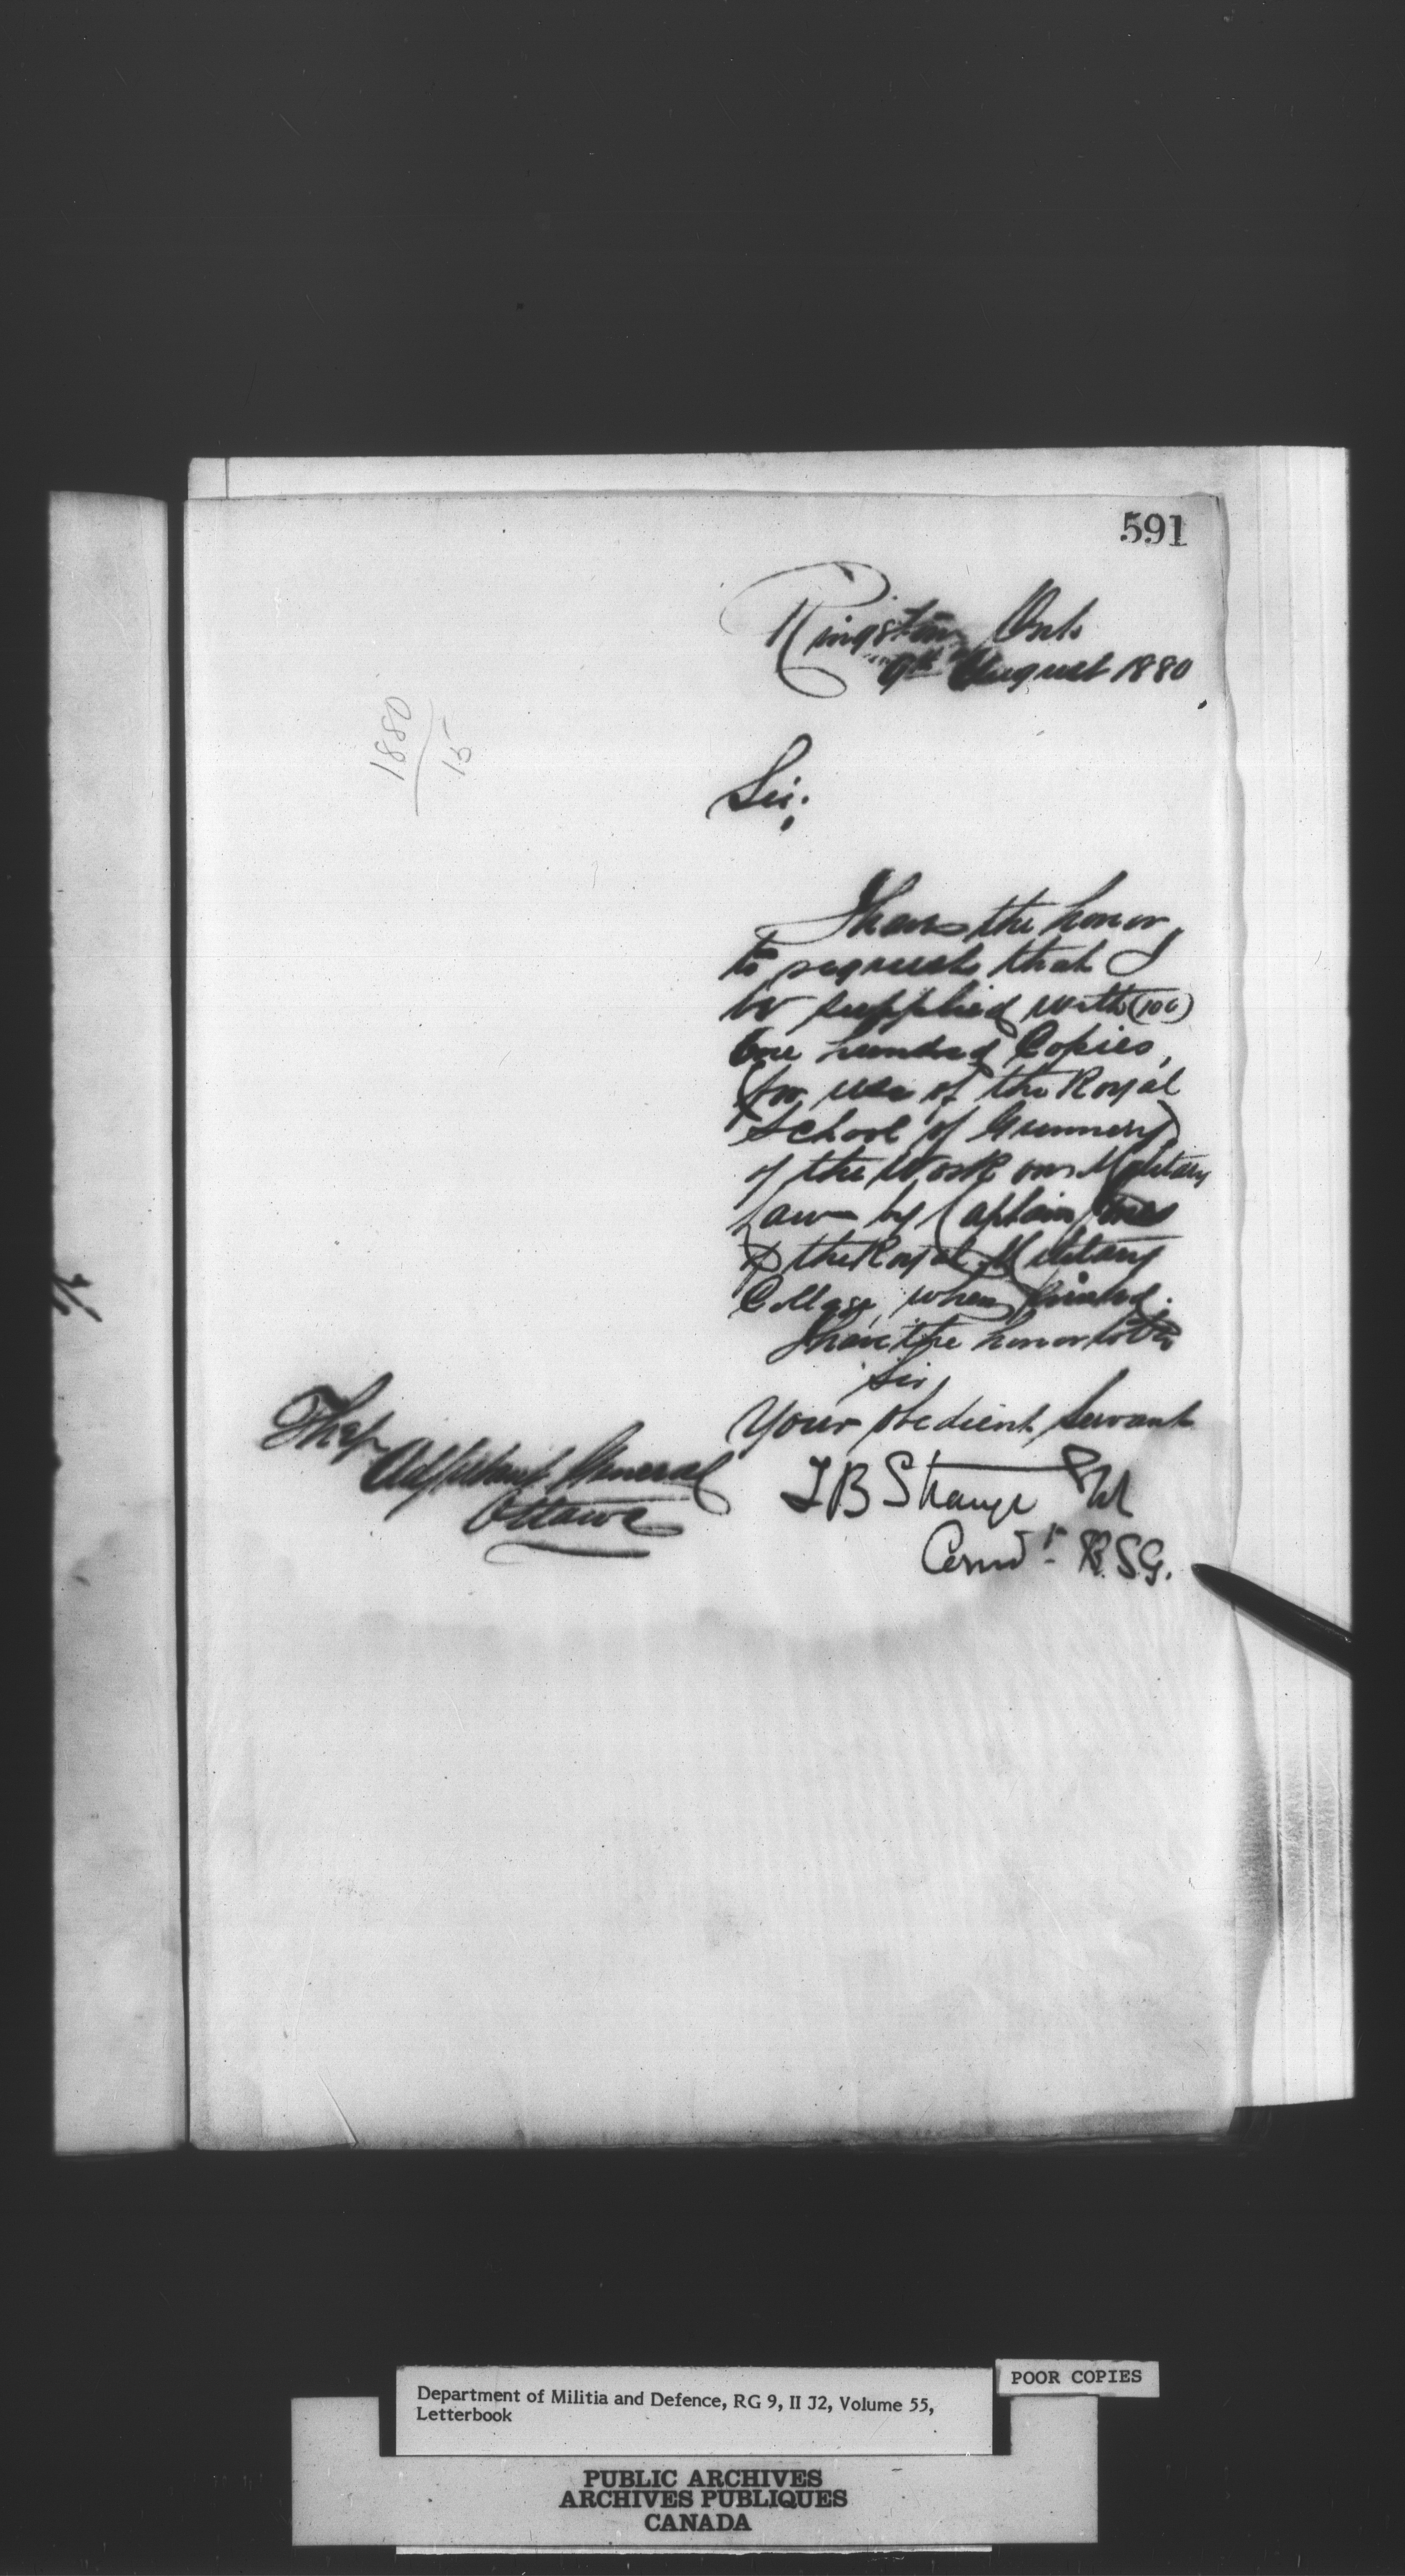 591
Kingston Ont.
9th August 1880
1880
15
Sir:
I have the honor
to request that I
be supplied with (100)
One hundred Copies,
(for use of the Royal
School of Gunnery)
of the Work on Military
Law by Captain
of the Royal Military
College, when printed.
I have the honor to be
Sir,
Your obedient Servant
T B Strange
Comdt. R.S.G.
The
Adjutant General
Ottawa
POOR COPIES
Department of Militia and Defence, RG 9, II J2, Volume 55,
Letterbook
PUBLIC ARCHIVES
ARCHIVES PUBLIQUES
CANADA